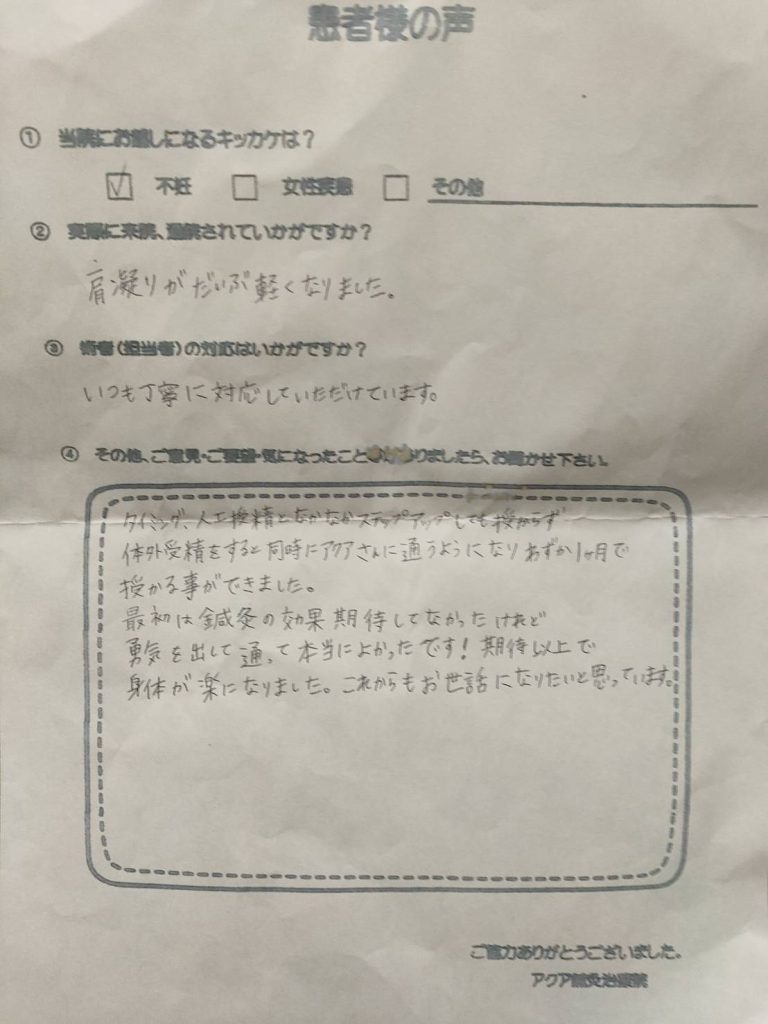 患者様の声
① 当院にお越しになるキッカケは?
☑ 不妊 □ 女性疾患 □ その他
② 実際に来院、通院されていかがですか?
肩凝りがだいぶ軽くなりました。
③ 術者(担当者)の対応はいかがですか?
いつも丁寧に対応していただけています。
④ その他、ご意見・ご要望・気になったこと りましたら、お聞かせ下さい。
タイミング、人工授精となかなかステップアップしても授からず
体外受精をすると同時にアクアさんに通うようになりわずか1ヶ月で
授かる事ができました。
最初は鍼灸の効果期待してなかったけれど
勇気を出して通って本当によかったです!期待以上で
身体が楽になりました。これからもお世話になりたいと思っています。
ご協力ありがとうございました。
アクア鍼灸治療院